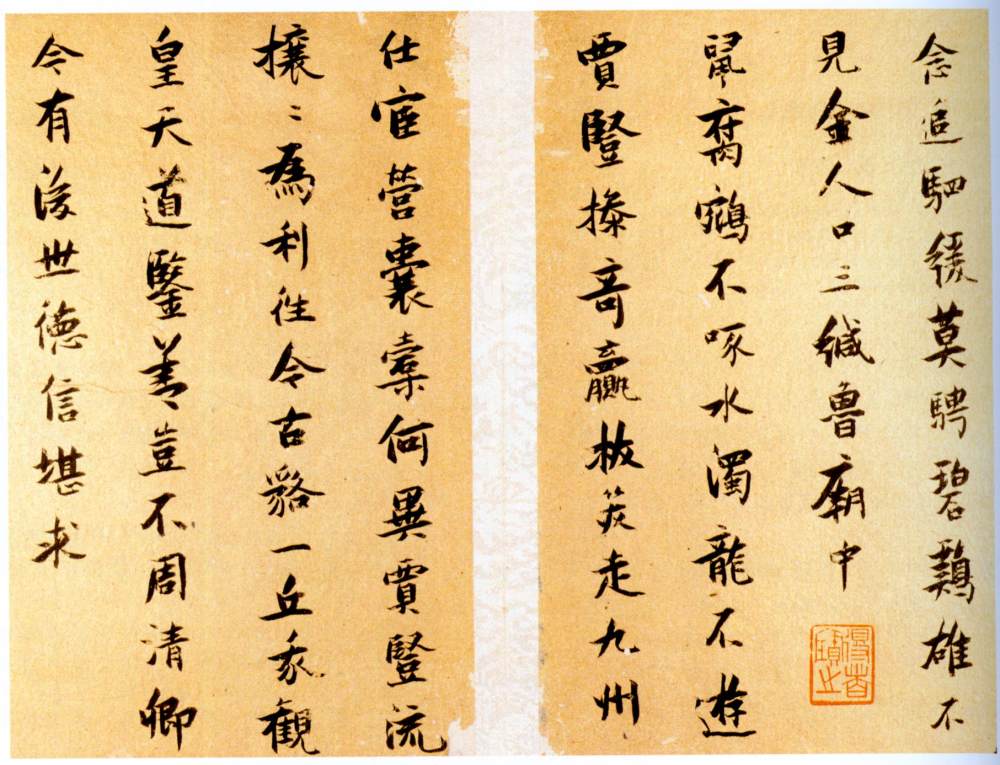 念追駟緩莫騁碧鷄雄不
見金人口三緘魯廟中
得者寶之
鼠腐鵷不啄水濁龍不遊
賈豎操奇贏挾筴走九州
仕宦營囊橐何異賈豎流
攘〻為利往今古貉一丘我觀
皇天道鑒善豈不周清卿
今有後世德信堪求